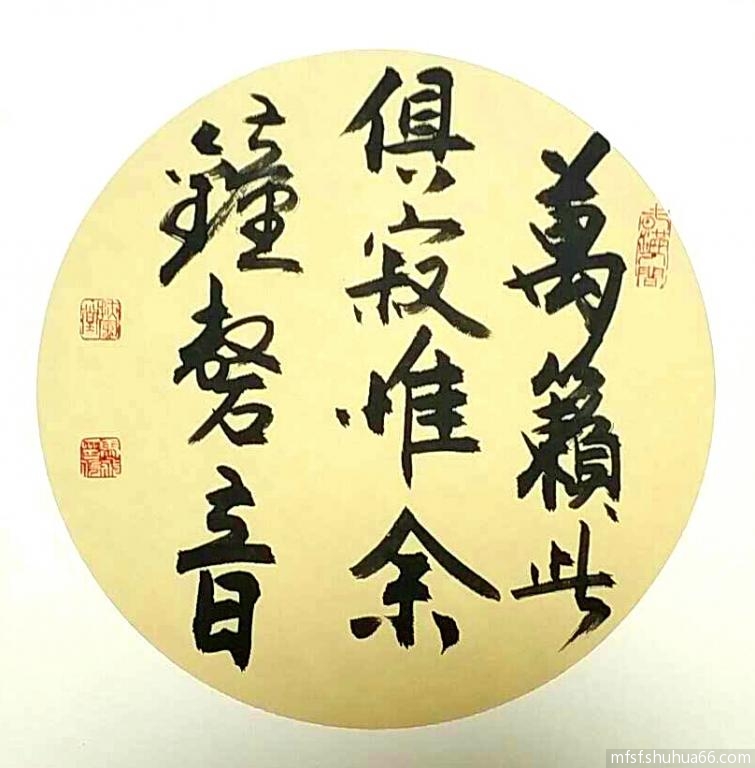 萬籟此
俱寂唯余
鐘磬音
mfsfshuhua66.com